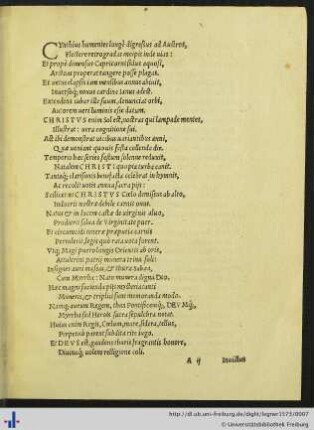 CYnthius humentes longè digressus ad Austros,
Flectere retrogradas incipit inde uias:
Et propè dimenso Capricorni sidus equosi,
Arctoas properat tangere posse plagas.
Et uetus elapsis iam mensibus annus abiuit,
Inuersoq; nouus cardine Ianus adest.
Extendens iubar ille suum, denunciat orbi,
Autorem ueri luminis esse datum.
CHRISTVS enim Sol est, nostras qui lampade mentes,
Illustrat: uera cognitione sui.
Ast ibi demonstrat uicibus uariantibus anni,
Quæ ueniant quouis Festa colenda die.
Temporis hæc series festum solenne reduxit,
Natalem CHRISTI: quo pia turba canit.
Tantaq; clarisonis benefacta celebrat in hymnis,
Ac recolit uotis annua sacra pijs:
Scilicet ut CHRISTVS Cœlo demissus ab alto,
Induerit nostræ debile carnis onus.
Natus & in lucem casta de uirginis aluo,
Prodierit salua de Virginitate puer.
Et circumcidi tenera præputia carnis
Pertulerit legis quò rata uota forent.
Vtq; Magi puero longis Orientis ab oris,
Attulerint patrij munera trina soli:
Insignes auri massas, & thura Sabæa,
Cum Myrrha: Nato munera digna Deo.
Hæc magni facienda pijs mysteria tanti
Muneris, & triplici sunt memoranda modo.
Namq; aurum Regem, thus Pontificemq;, DEVMq;,
Myrrha sed Herois sacra sepulchra notat.
Huius enim Regis, Cœlum, mare, sidera, tellus,
Perpetuò parent subdita rite iugo.
Et DEVS est, gaudens thuris fragrantis honore,
Diuinoq; uolens relligione coli.
A ij
Inuictus
http://dl.ub.uni-freiburg.de/diglit/hegner1573/0007
© Universitätsbibliothek Freiburg